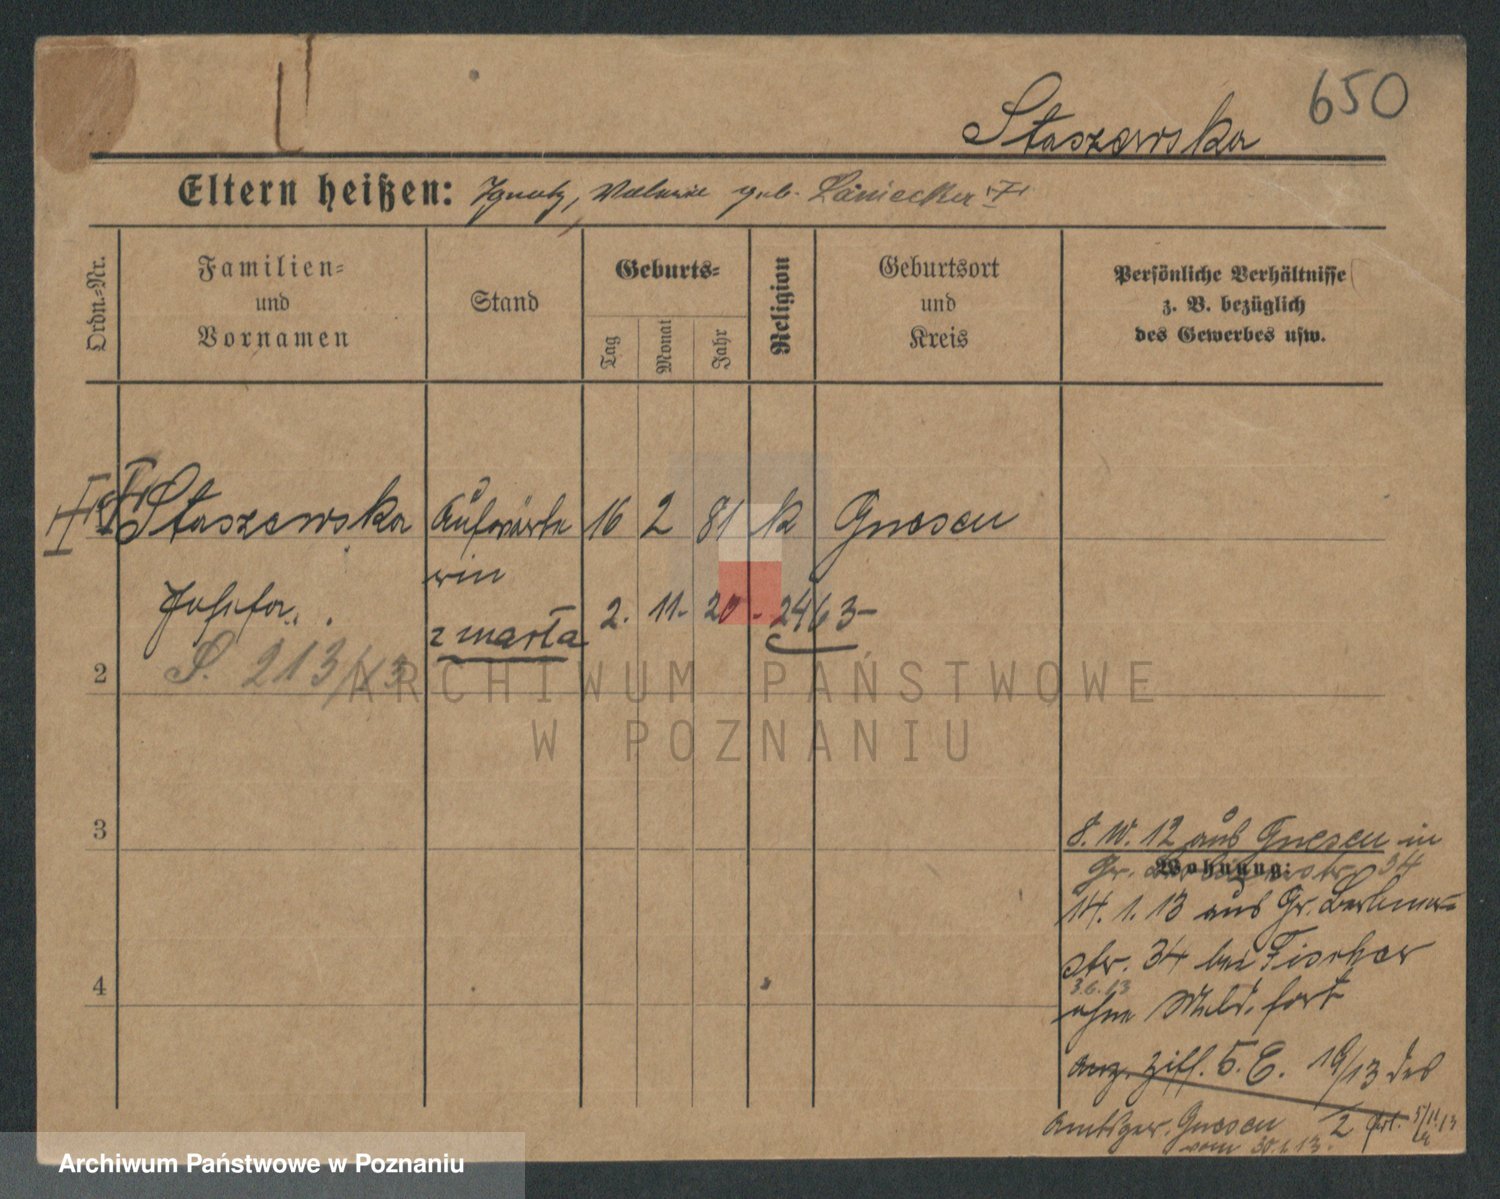 650
Staszewska
Eltern heißen: Ignatz, Valerie geb. Laniecka
Ordn.-Nr.
Familien-
und
Vornamen
Stand
Geburts-
Tag
Monat
Jahr
Religion
Geburtsort
und
Kreis
Persönliche Verhältnisse
z. B. bezüglich
des Gewerbes usw.
Staszewska Aufwärte 16 2 81 k Gnesen
rin
Josefa
zmarła 2. 11. 20 - 2463-
S. 213/13
2
3
4
8. 10. 12 aus Gnesen in
Wohnung:
Gr. 34
14. 1. 13 aus Gr. Berliner-
str. 34 bei Fischer
3.6.13
ohne Meld. fort
Anz. Ziff. 5. E. 19/13 des
Amtsger. Gnesen
vom 30.1.13.
ARCHIWUM PAŃSTWOWE
W POZNANIU
Archiwum Państwowe w Poznaniu